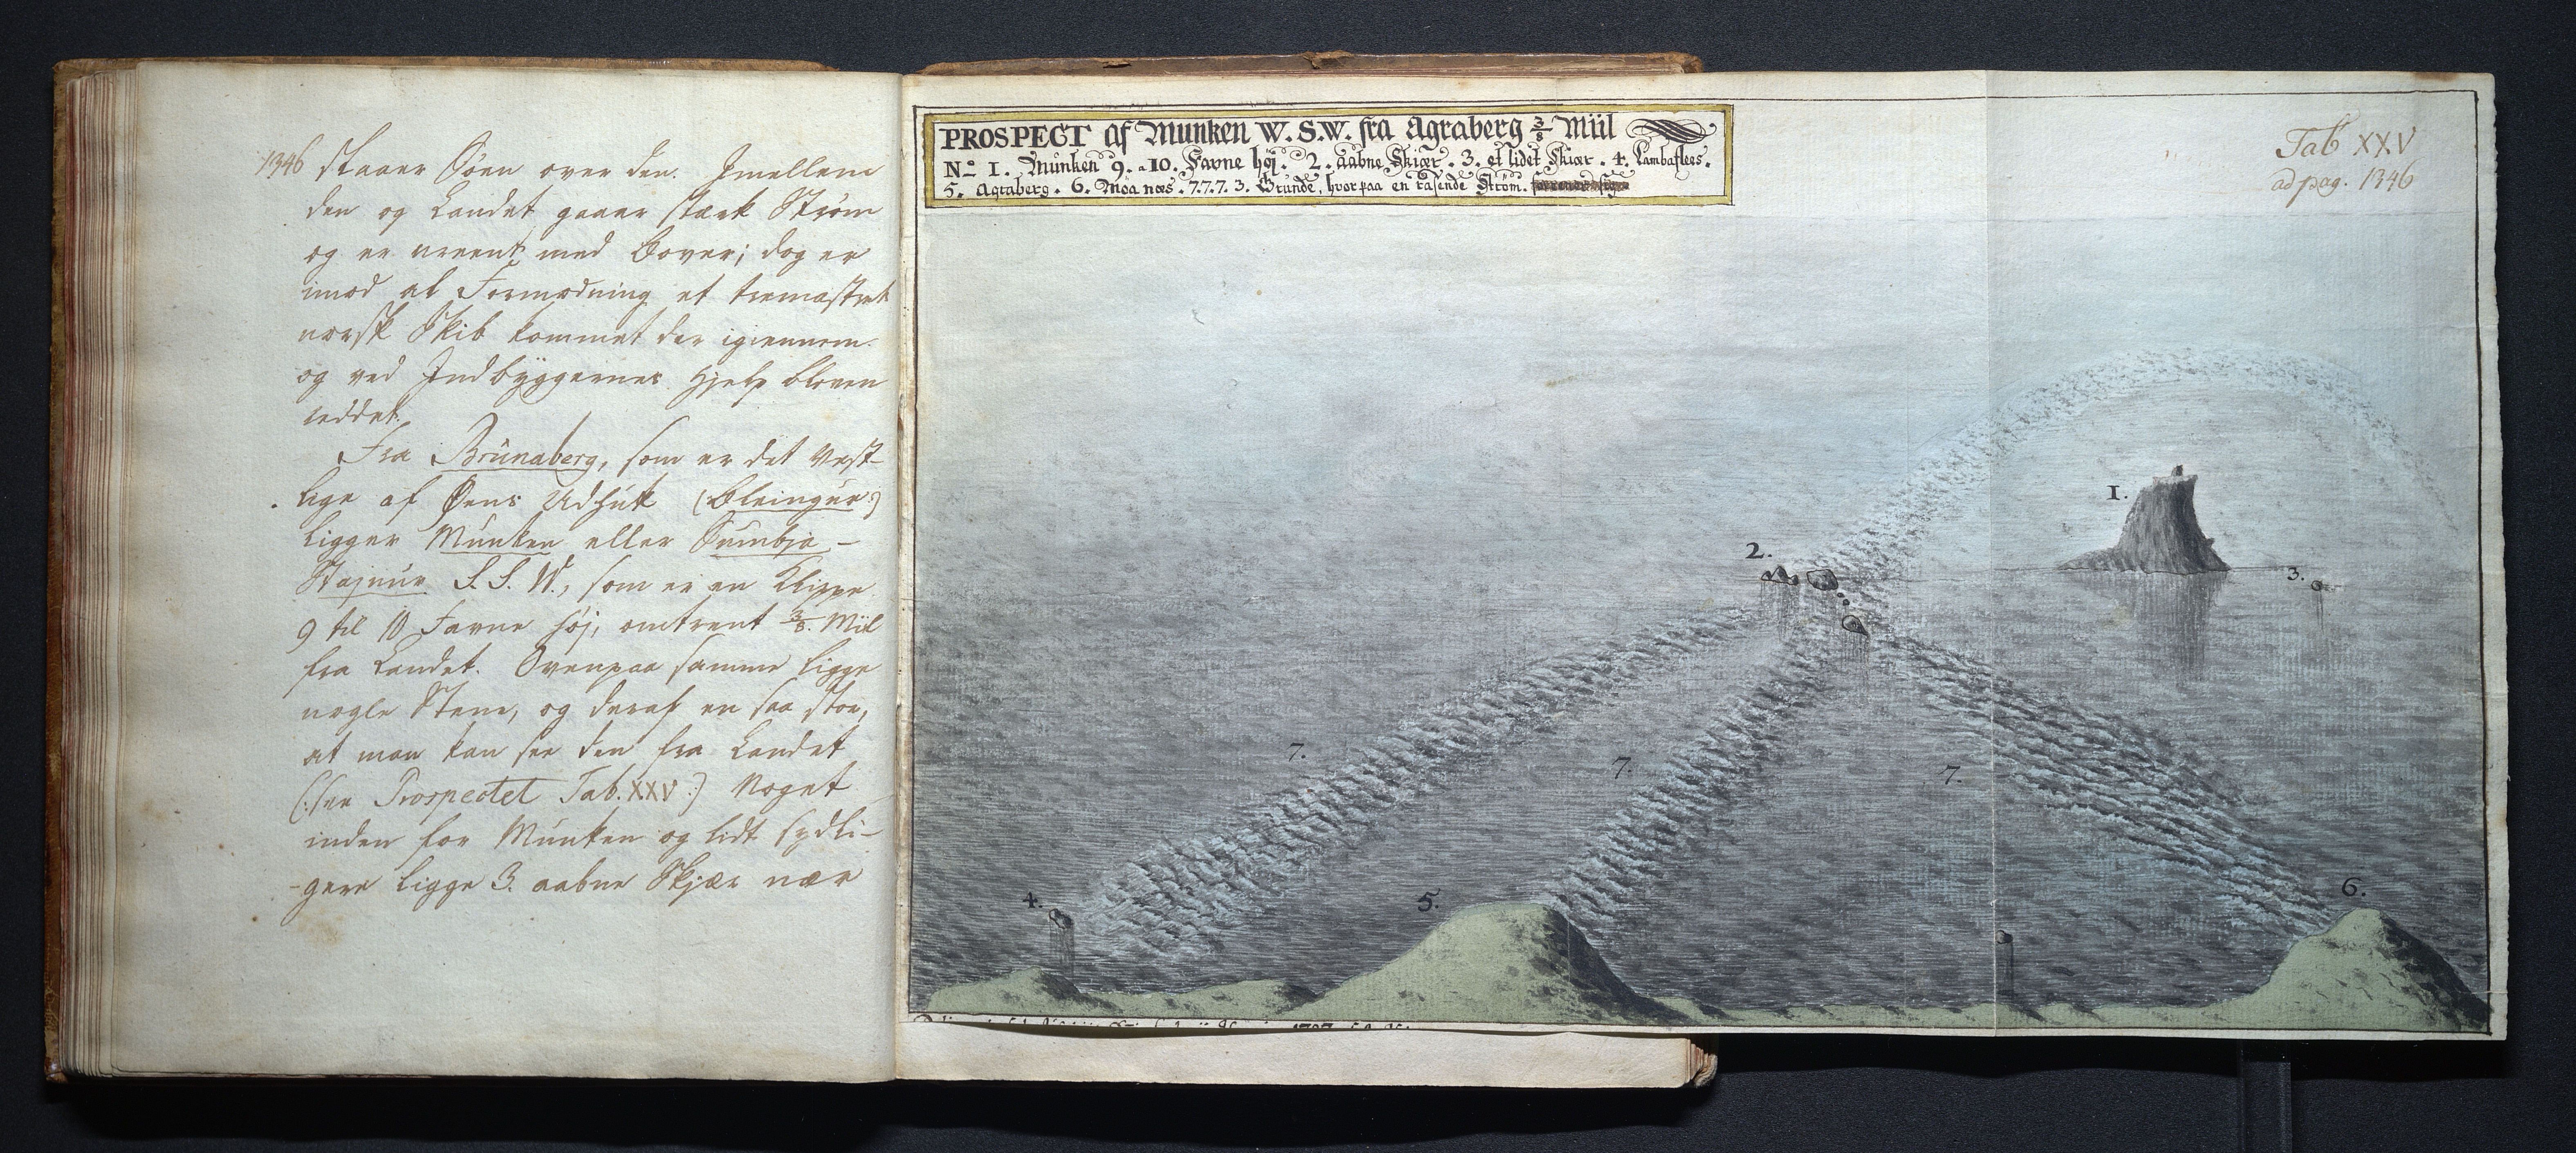 1346 slaaer Søen over den. Imellem
den og Landet gaaer stærk Strøm
og er ureent med Bover; dog er
imod al Formodning et tremastret
norsk Skib kommet der igiennem
og ved Indbyggernes Hjelp bleven
reddet.
Fra Brünaberg, som er det vest-
lige af Øens Udhuk (Bleingur:)
ligger Munken eller Sumbja-
Stajnur S. S. W., som er en Klippe
9 til 10 Favne høj, omtrent 3/8. Miil
fra Landet. Ovenpaa samme ligge
nogle Stene, og deraf en saa stor,
at man kan see den fra Landet
(:see Prospectet Tab. XXV:) Noget
inden for Munken og lidt sydli-
-gere ligge 3. aabne Skjær nær
PROSPECT af Munken W. S.W. fra Agraberg 3/8 Miil
No 1. Munken 9. a 10. Favne høj. 2. aabne Skiær. 3. et lidet Skiær. 4. Lambaflees.
5. Agraberg. 6. Moa næs. 7.7.7. 3. Grunde, hvor paa en rasende Strøm.
Tab XXV
ad pag. 1346
1.
2.
3.
7.
7.
7.
4.
5.
6.